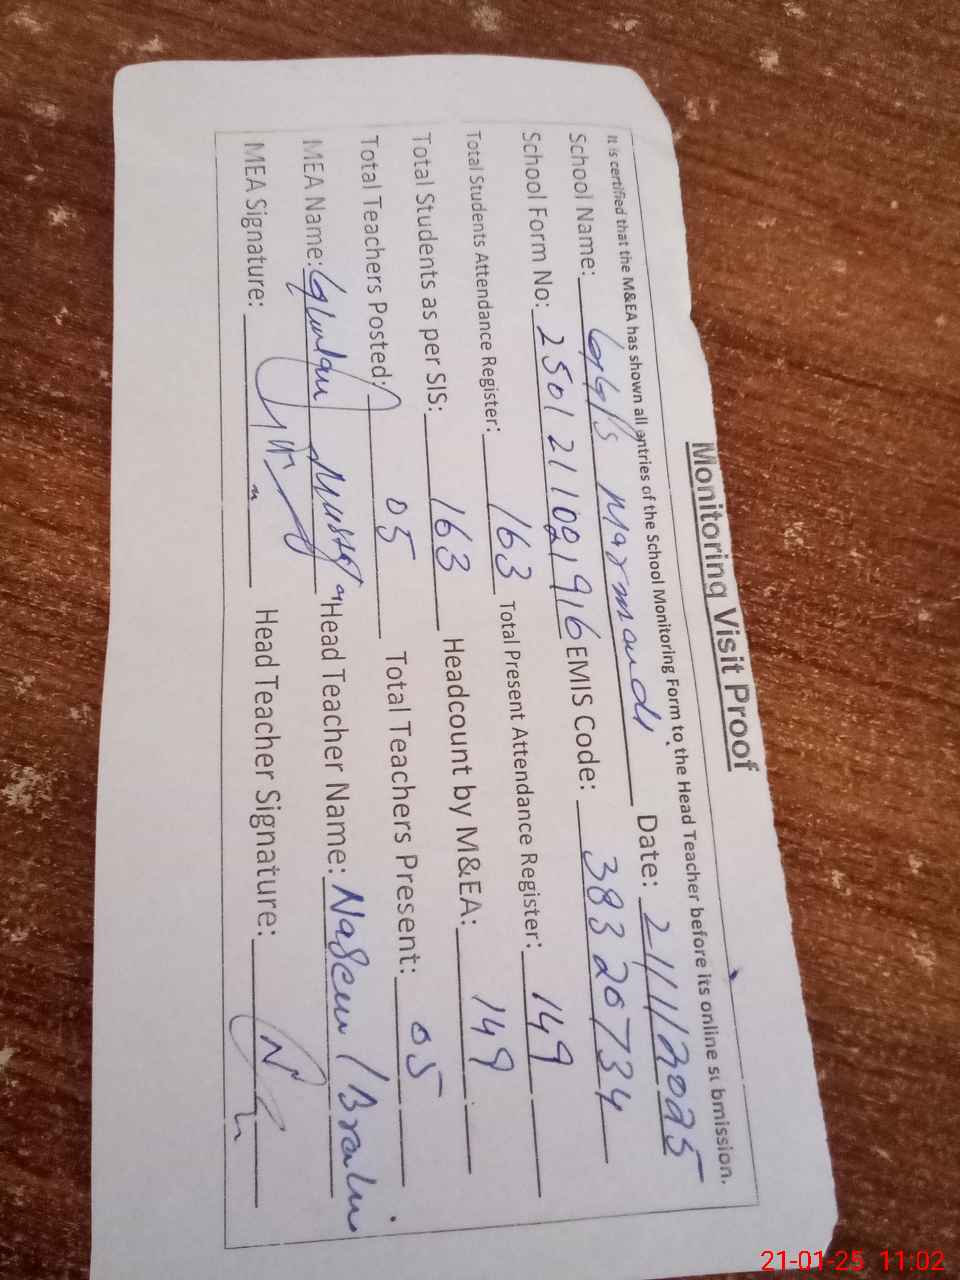 Monitoring Visit Proof
It is certified that the M&EA has shown all entries of the School Monitoring Form to the Head Teacher before its online submission.
School Name: GG/S Marmandi Date: 21/1/2025
School Form No: 2501211021916 EMIS Code: 38320734
Total Students Attendance Register: 163 Total Present Attendance Register: 149
Total Students as per SIS: 163 Headcount by M&EA: 149
Total Teachers Posted: 05 Total Teachers Present: 05
MEA Name: Ghulam Mustafa Head Teacher Name: Naseem
MEA Signature: Head Teacher Signature:
21-01-25 11:02